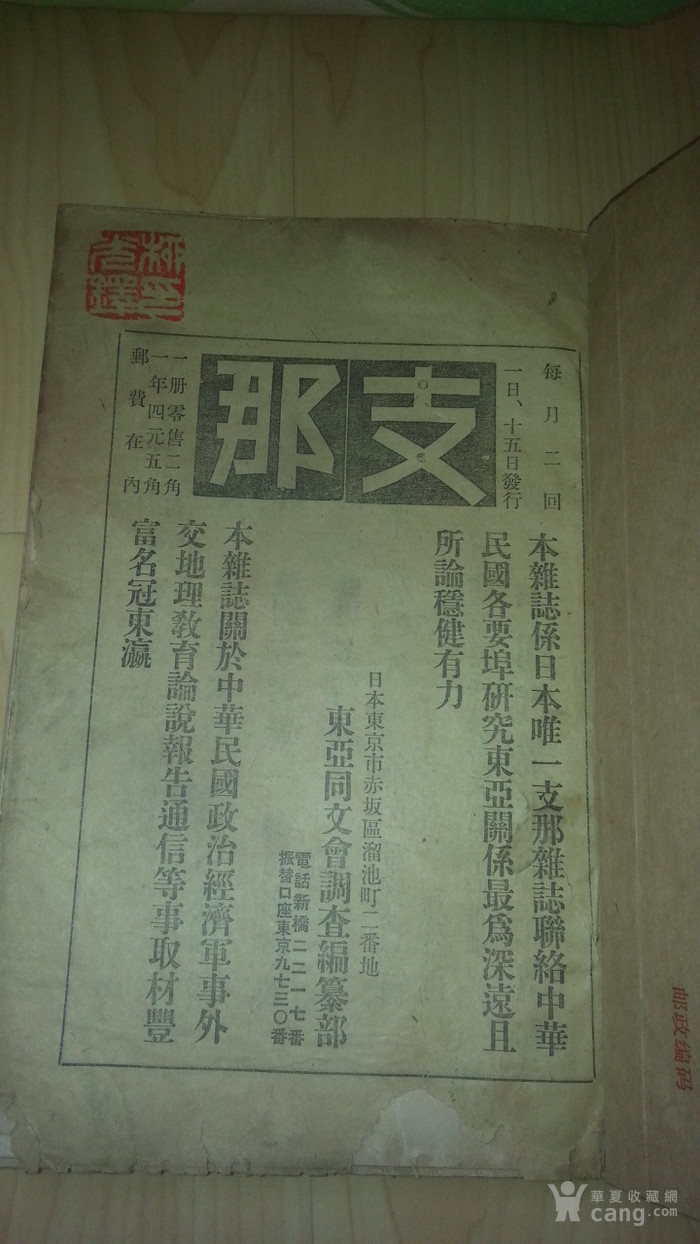 每月二回
一日、十五日發行
支那
一册零售二角
一年四元五角
郵費在內
本雜誌係日本唯一支那雜誌聯絡中華
民國各要埠研究東亞關係最爲深遠且
所論穩健有力
日本東京市赤坂區溜池町二番地
東亞同文會調查編纂部
電話新橋二二一七番
振替口座東京九七三〇番
本雜誌關於中華民國政治經濟軍事外
交地理教育論說報告通信等事取材豐
富名冠東瀛
邮政编码
華夏收藏網
cang.com